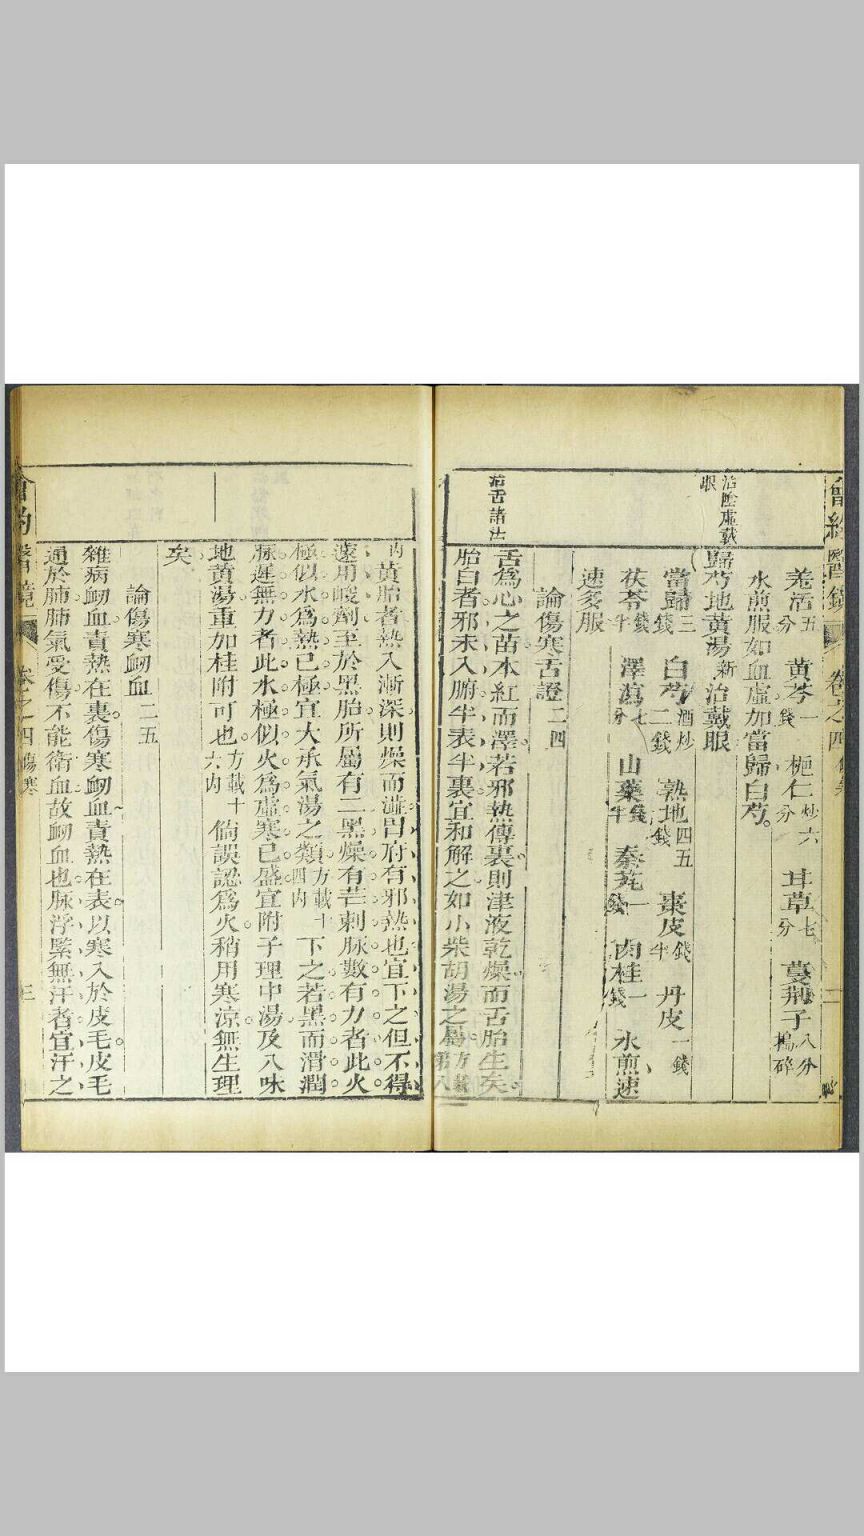 羌活五分　黄芩一錢　梔仁炒六分　甘草七分　蔓荆子八分搗碎
水煎服如血虛加當歸白芍。
治陰虛戴眼
歸芍地黄湯新　治戴眼
當歸三錢　白芍酒炒二錢　熟地四五錢　棗皮錢半　丹皮一錢
茯苓錢半　澤瀉七分　山藥錢半　秦艽一錢　肉桂一錢　水煎速
速多服
論傷寒舌證二四
治舌諸法
舌爲心之苗本紅而澤若邪熱傳裏則津液乾燥而舌胎生矣
胎白者邪未入腑半表半裏宜和解之如小柴胡湯之屬方載第八
内黄胎者熱入漸深則燥而澁胃府有邪熱也宜下之但不得
遽用峻劑至於黑胎所屬有二黑燥有芒刺脉數有力者此火
極似水爲熱已極宜大承氣湯之類方載十四内下之若黑而滑潤
脉遲無力者此水極似火爲虛寒已盛宜附子理中湯及八味
地黄湯重加桂附可也方載十六内倘誤認爲火稍用寒涼無生理
矣
論傷寒衂血二五
雜病衂血責熱在裏傷寒衂血責熱在表以寒入於皮毛皮毛
通於肺肺氣受傷不能衛血故衂血也脉浮緊無汗者宜汗之
會約醫鏡　卷之四傷寒　三